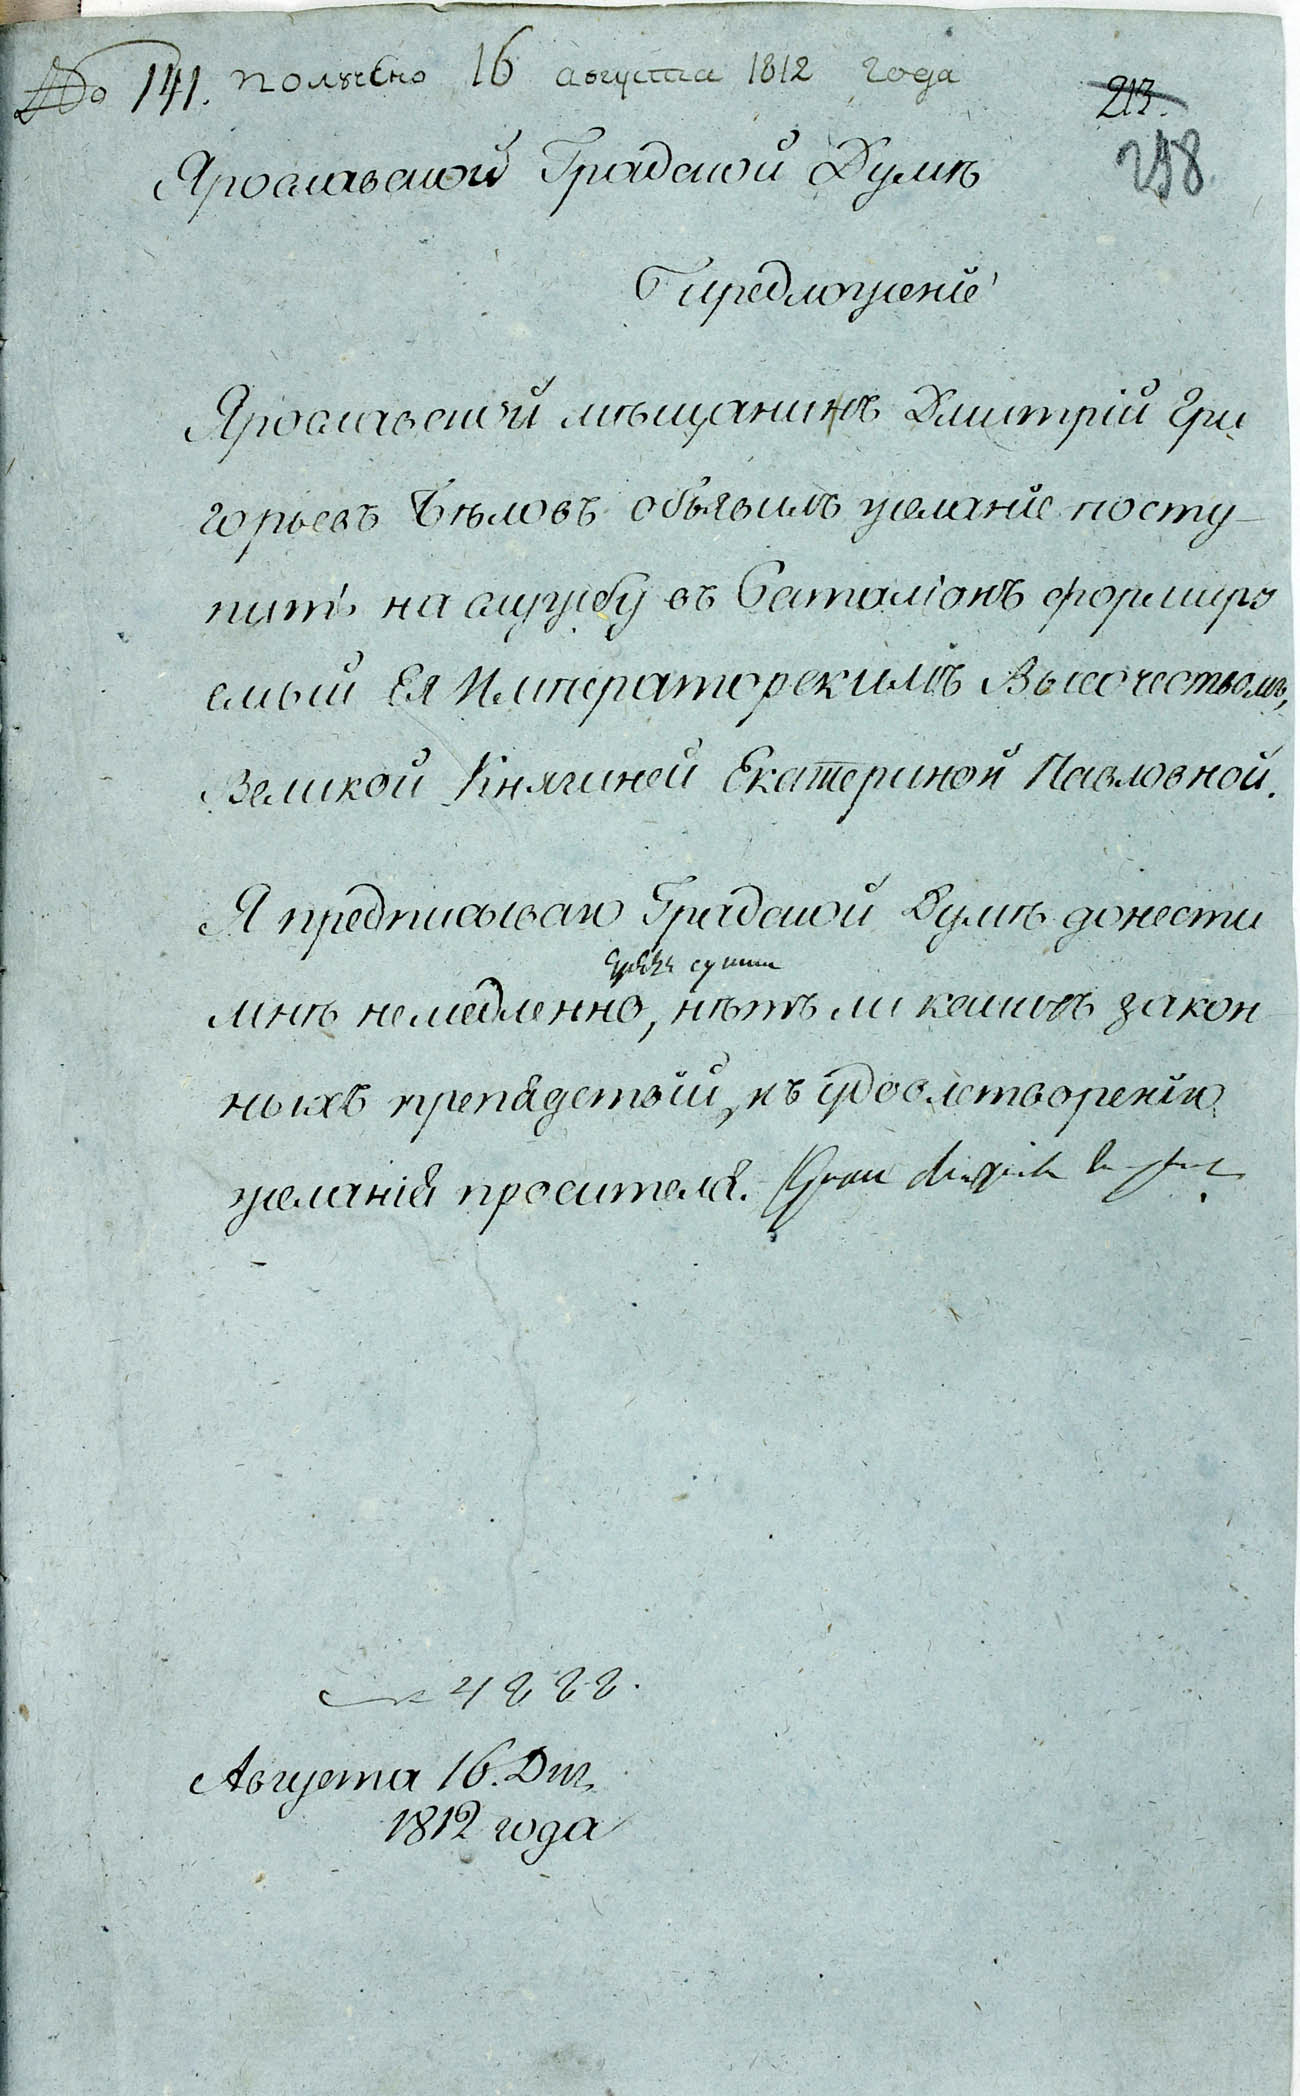 141. получено 16 августа 1812 года
213.
Ярославской Градской Думѣ
Предложеніе
Ярославской мѣщанинъ Дмитрій Гри
горьевъ Бѣловъ объявилъ желаніе посту-
пить на службу въ баталіонъ формиру
емый Ея Императорскимъ Высочествомъ,
Великой Княгиней Екатериной Павловной.
Я предписываю Градской Думѣ донести
мнѣ немедленно, нѣтъ ли какихъ закон
ныхъ препядствій, къ удовлетворенію
желаній просителя.
4222.
Августа 16. Дня
1812 года